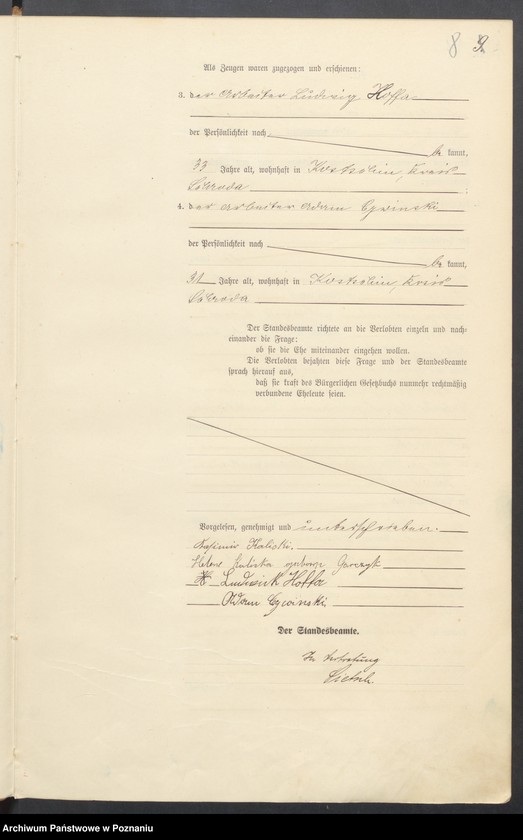 8 9.
Als Zeugen waren zugezogen und erschienen:
3. der Arbeiter Ludwig Hoffa
der Persönlichkeit nach
be kannt,
33 Jahre alt, wohnhaft in Kostschin, Kreis
Schroda
4. der Arbeiter Adam Cywinski
der Persönlichkeit nach
be kannt,
31 Jahre alt, wohnhaft in Kostschin, Kreis
Schroda
Der Standesbeamte richtete an die Verlobten einzeln und nach-
einander die Frage:
ob sie die Ehe miteinander eingehen wollen.
Die Verlobten bejahten diese Frage und der Standesbeamte
sprach hierauf aus,
daß sie kraft des Bürgerlichen Gesetzbuchs nunmehr rechtmäßig
verbundene Eheleute seien.
Vorgelesen, genehmigt und unterschrieben.
Kasimir Kulicki.
Helene Kulicka geborene
Ludwik Hoffa
Adam Cywinski.
Der Standesbeamte.
In Vertretung
Archiwum Państwowe w Poznaniu